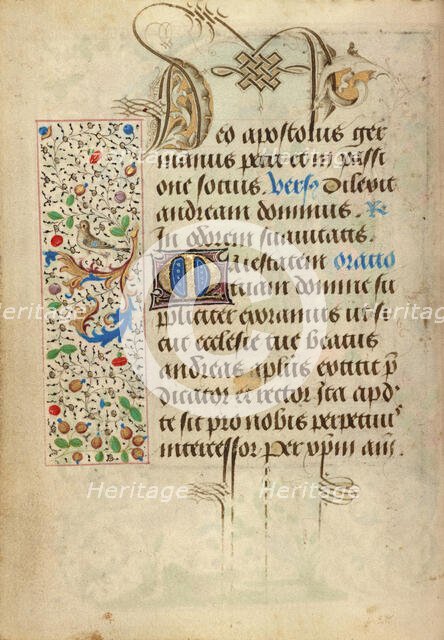 Deo apostolus ger
manus petri et in passi
one socius. Vers Dilexit
andream dominus. R
In odorem suauitatis.
Maiestatem oratio
tuam domine su
pliciter exoramus ut si
cut ecclesie tue beatus
andreas aplus extitit p
dicator et rector ita apd
te sit pro nobis perpetuus
intercessor per xpm am
Heritage
Heritage
Heritage
Heritage
Heritage
Heritage